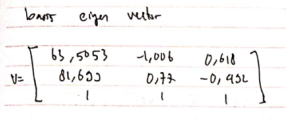 basis eigen vector
63,5053 -1,006 0,618
V= 81,633 0,77 -0,432
1 1 1